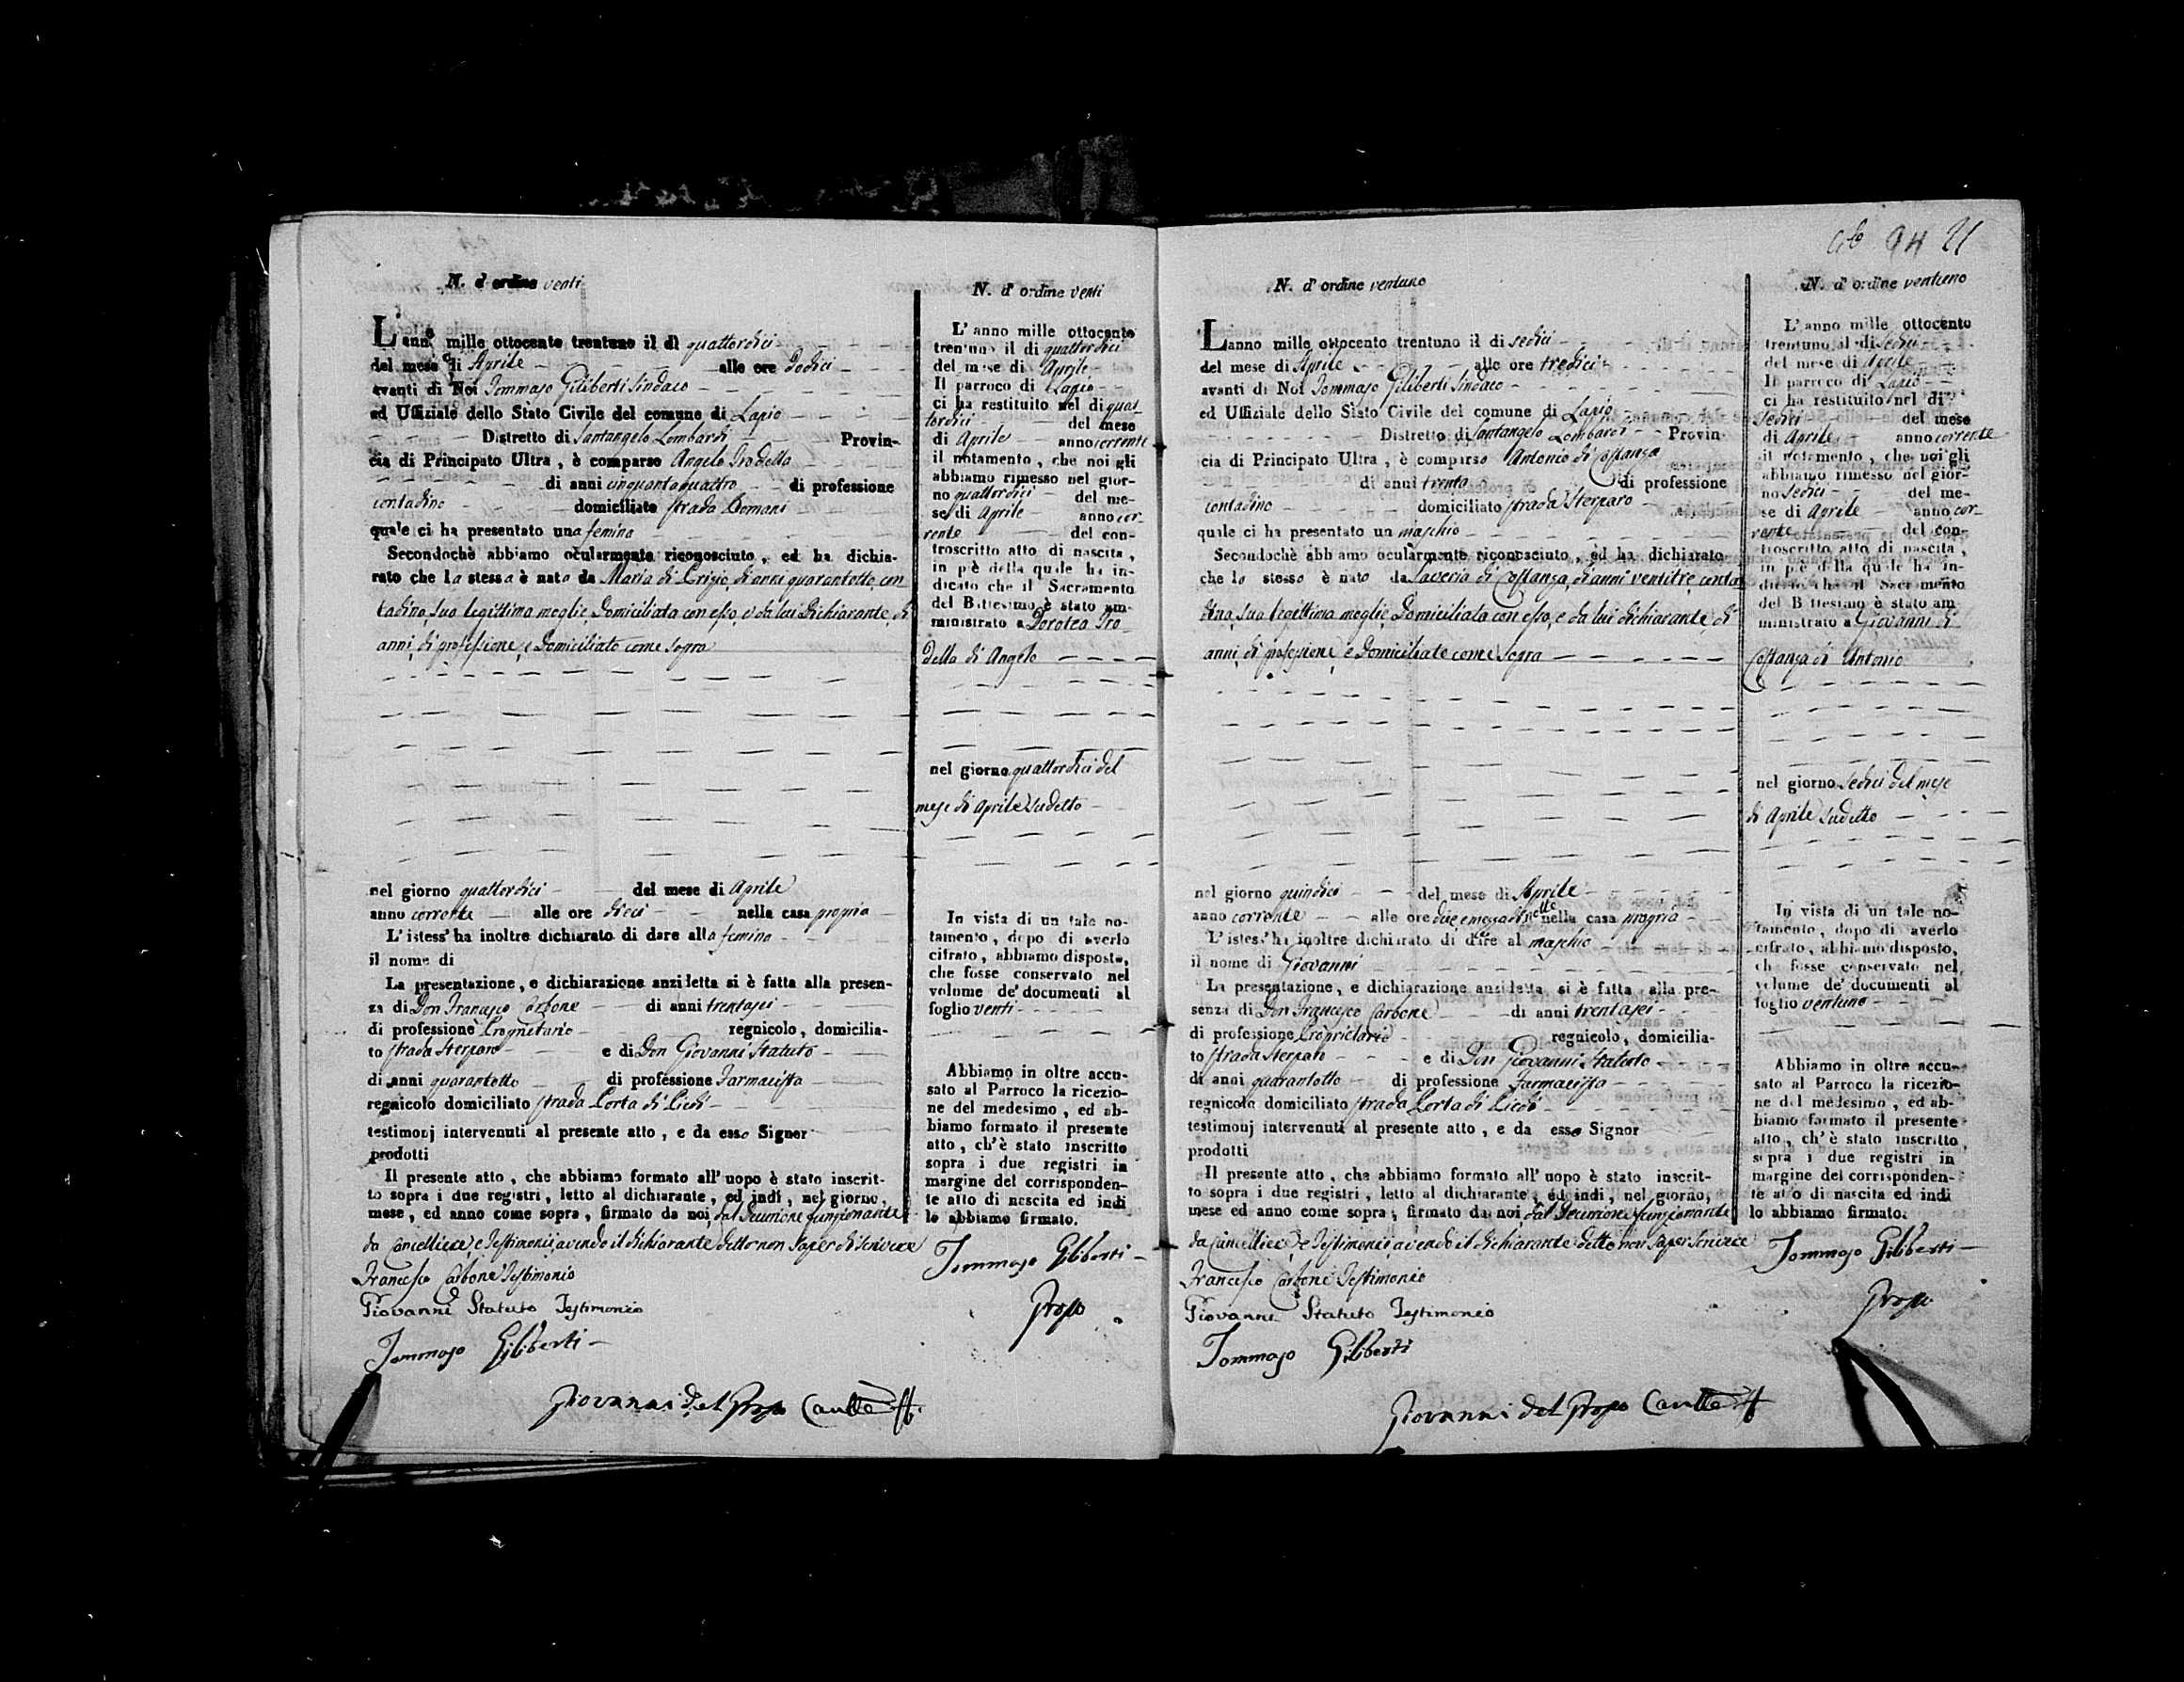 N. d'ordine venti
L'anno mille ottocento trentuno il dì quattordici
del mese di Aprile alle ore Dodici
avanti di Noi Tommaso Giliberti Sindaco
ed Uffiziale dello Stato Civile del comune di Lapio
Distretto di Santangelo Lombardi Provin-
cia di Principato Ultra, è comparso Angelo Trodella
di anni cinquantaquattro di professione
contadino domiciliato strada Domani
quale ci ha presentato una femina
Secondochè abbiamo ocularmente riconosciuto, ed ha dichia-
rato che la stessa è nata da Maria di Crizio, di anni quarantotto, con
tadina, sua legittima moglie, Domiciliata con esso, e da lui Dichiarante, di
anni, di professione, e Domiciliato come sopra
nel giorno quattordici del mese di Aprile
anno corrente alle ore dieci nella casa propria
L'istess' ha inoltre dichiarato di dare alla femina
il nome di
La presentazione, e dichiarazione anzidetta si è fatta alla presen-
za di Don Francesco Carbone di anni trentasei
di professione Proprietario regnicolo, domicilia-
to strada Sterparo e di Don Giovanni Statuto
di anni quarantotto di professione Farmacista
regnicolo domiciliato strada Porta di Piedi
testimonj intervenuti al presente atto, e da esso Signor
prodotti
Il presente atto, che abbiamo formato all'uopo è stato inscrit-
to sopra i due registri, letto al dichiarante, ed indi, nel giorno,
mese, ed anno come sopra, firmato da noi, dal Decurione funzionante
da Cancelliere, e Testimonii, avendo il dichiarante detto non saper di scrivere
Francesco Carbone Testimonio
Giovanni Statuto Testimonio
Tommaso Giliberti
Giovanni del Propo
N. d'ordine venti
L'anno mille ottocento
trentuno il di quattordici
del mese di Aprile
Il parroco di Lapio
ci ha restituito nel di quat-
tordici del mese
di Aprile anno corrente
il notamento, che noi gli
abbiamo rimesso nel gior-
no quattordici del me-
se di Aprile anno cor-
rente del con-
troscritto atto di nascita,
in piè della quale ha in-
dicato che il Sacramento
del Battesimo è stato am-
ministrato a Dorotea Tro-
della di Angelo
nel giorno quattordici del
mese di Aprile sudetto
In vista di un tale no-
tamento, dopo di averlo
cifrato, abbiamo disposto,
che fosse conservato nel
volume de' documenti al
foglio venti
Abbiamo in oltre accu-
sato al Parroco la ricezio-
ne del medesimo, ed ab-
biamo formato il presente
atto, ch'è stato inscritto
sopra i due registri in
margine del corrisponden-
te atto di nascita ed indi
lo abbiamo firmato.
Tommaso Giliberti
Propo
94 21
N. d'ordine ventuno
L'anno mille ottocento trentuno il di sedici
del mese di Aprile alle ore tredici
avanti di Noi Tommaso Giliberti Sindaco
ed Uffiziale dello Stato Civile del comune di Lapio
Distretto di Santangelo Lombardi Provin-
cia di Principato Ultra, è comparso Antonio di Costanza
di anni trenta di professione
contadino domiciliato strada Sterparo
quale ci ha presentato un maschio
Secondochè abbiamo ocularmente riconosciuto, ed ha dichiarato
che lo stesso è nato da Saveria di Costanza, di anni ventitre, conta
dina, sua legittima moglie, Domiciliata con esso, e da lui dichiarante, di
anni, di professione, e Domiciliato come sopra
nel giorno quindici del mese di Aprile
anno corrente alle ore due e mezza di notte nella casa propria
L'istess' ha inoltre dichiarato di dare al maschio
il nome di Giovanni
La presentazione, e dichiarazione anzidetta si è fatta alla pre-
senza di Don Francesco Carbone di anni trentasei
di professione Proprietario regnicolo, domicilia-
to strada Sterparo e di Don Giovanni Statuto
di anni quarantotto di professione Farmacista
regnicolo domiciliato strada Porta di Piedi
testimonj intervenuti al presente atto, e da esso Signor
prodotti
Il presente atto, che abbiamo formato all'uopo è stato inscrit-
to sopra i due registri, letto al dichiarante, ed indi, nel giorno,
mese ed anno come sopra, firmato da noi, dal Decurione funzionante
da Cancelliere, e Testimonii avendo il dichiarante detto non saper scrivere
Francesco Carbone Testimonio
Giovanni Statuto Testimonio
Tommaso Giliberti
Giovanni del Propo
N. d'ordine ventuno
L'anno mille ottocento
trentuno il di sedici
del mese di Aprile
Il parroco di Lapio
ci ha restituito nel di
sedici del mese
di Aprile anno corrente
il notamento, che noi gli
abbiamo rimesso nel gior-
no sedici del me-
se di Aprile anno cor-
rente del con-
troscritto atto di nascita,
in piè della quale ha in-
dicato che il Sacramento
del Battesimo è stato am-
ministrato a Giovanni di
Costanza di Antonio
nel giorno sedici del mese
di Aprile sudetto
In vista di un tale no-
tamento, dopo di averlo
cifrato, abbiamo disposto,
che fosse conservato nel
volume de' documenti al
foglio ventuno
Abbiamo in oltre accu-
sato al Parroco la ricezio-
ne del medesimo, ed ab-
biamo formato il presente
atto, ch'è stato inscritto
sopra i due registri in
margine del corrisponden-
te atto di nascita ed indi
lo abbiamo firmato.
Tommaso Giliberti
Propo